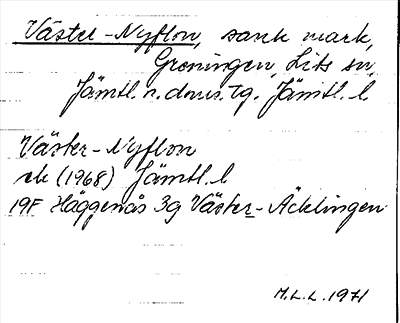 Väster-Nyflon, sank mark,
Greningen, Lits sn,
Jämtl. n. doms. tg. Jämtl. l
Väster-Nyflon
ek (1968) Jämtl. l
19F Häggenås 3g Väster-Äcklingen
M.L.L. 1971